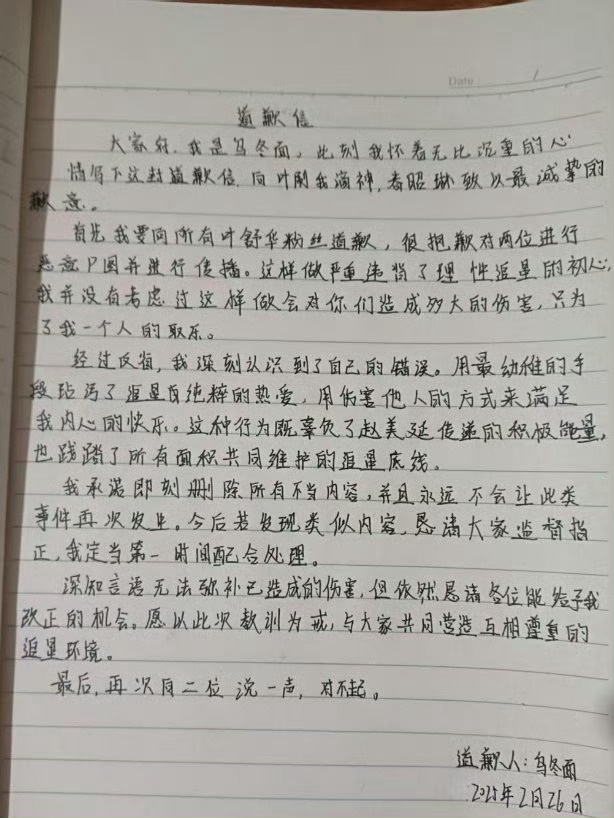 Date 1
道歉信
大家好，我是乌冬面，此刻我怀着无比沉重的心
情写下这封道歉信，向叶刚我滴神，春昭琳致以最诚挚的
歉意。
首先我要向所有叶舒华粉丝道歉，很抱歉对两位进行
恶意P图并进行传播。这样做严重违背了理性追星的初心，
我并没有考虑过这样做会对你们造成多大的伤害，只为
了我一个人的取乐。
经过反省，我深刻认识到了自己的错误。用最幼稚的手
段玷污了追星最纯粹的热爱，用伤害他人的方式来满足
我内心的快乐。这种行为既辜负了赵美延传递的积极能量，
也践踏了所有面积共同维护的追星底线。
我承诺即刻删除所有不当内容，并且永远不会让此类
事件再次发生。今后若发现类似内容，恳请大家监督指
正，我定当第一时间配合处理。
深知言语无法弥补已造成的伤害，但依然恳请各位能给予我
改正的机会。愿以此次教训为戒，与大家共同营造互相尊重的
追星环境。
最后，再次向二位说一声，对不起。
道歉人：乌冬面
2025年2月26日